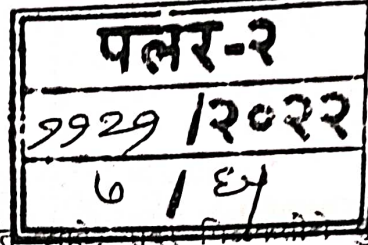 पलर-२
११२१ /२०२२
७ / ६५